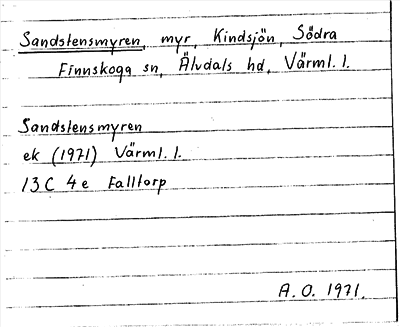 Sandstensmyren, myr, Kindsjön, Södra
Finnskoga sn, Älvdals hd, Värml. l.
Sandstensmyren
ek (1971) Värml. l.
13C 4e Falltorp
A.O. 1971.